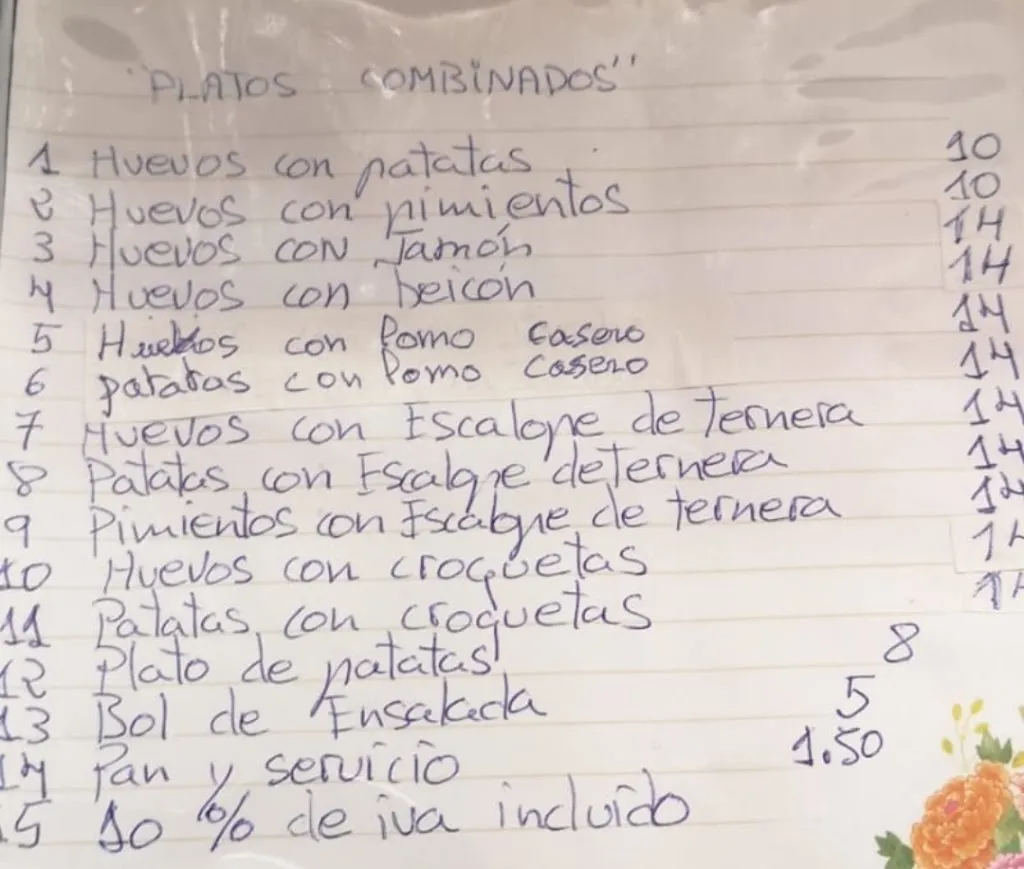 "PLATOS COMBINADOS"
1 Huevos con patatas 10
2 Huevos con pimientos 10
3 Huevos CON Jamón 14
4 Huevos con beicón 14
5 Huevos con Lomo Casero 14
6 patatas con Lomo Casero 14
7 Huevos con Escalope de Ternera 14
8 Patatas con Escalope de ternera 14
9 Pimientos con Escalope de ternera 14
10 Huevos con croquetas 14
11 Patatas con croquetas 14
12 Plato de patatas 8
13 Bol de Ensalada 5
14 Pan y servicio 1.50
15 10 % de iva incluído